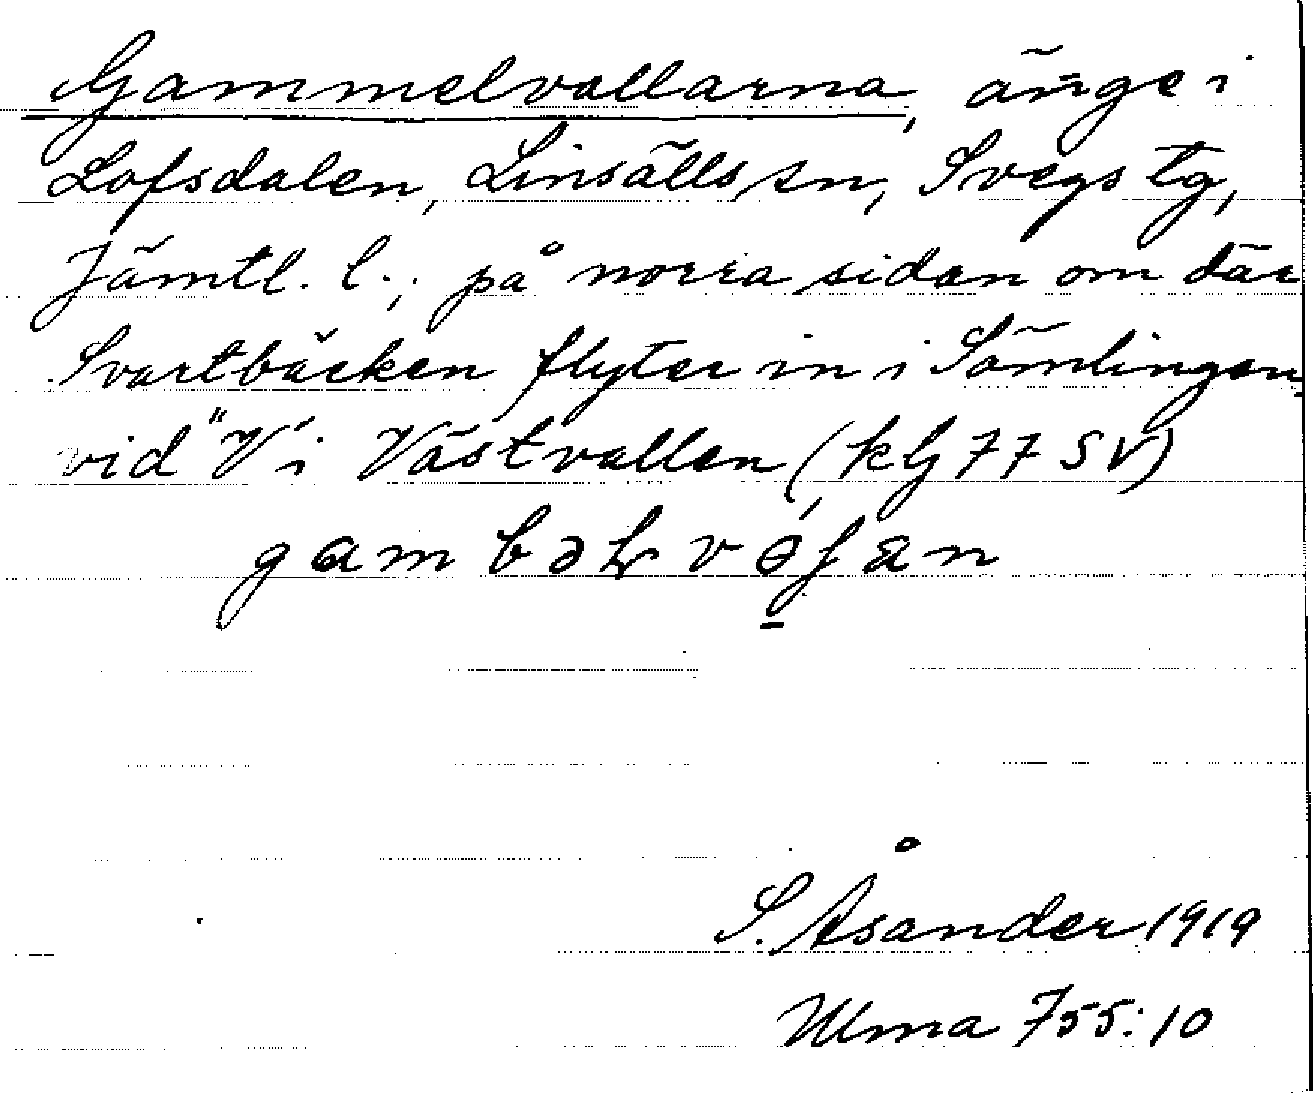 Gammelvallarna, änge i
Lofsdalen, Linsälls sn, Svegs tg,
Jämtl. l.; på norra sidan om där
Svartbäcken flyter in i Sömlingen
vid "V" i Västvallen (kbl 77 SV)
S. Åsander 1919
Ulma 755:10